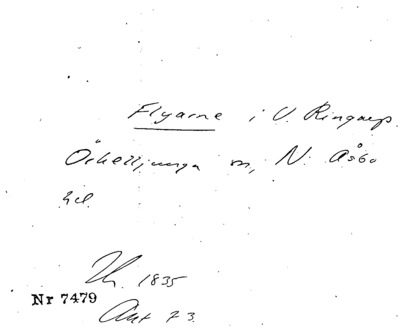 Flyarne i V. Ringarp
Örkelljunga sn, N. Åsbo
hd.
Th. 1835
Nr 7479
Ant 73.